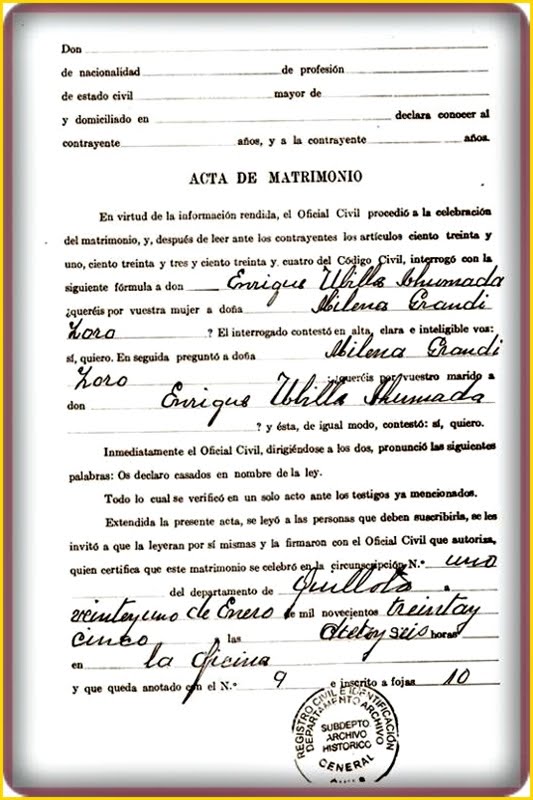 Don
de nacionalidad de profesión
de estado civil mayor de
y domiciliado en declara conocer al
contrayente años, y a la contrayente años.
ACTA DE MATRIMONIO
En virtud de la información rendida, el Oficial Civil procedió a la celebración
del matrimonio, y, después de leer ante los contrayentes los artículos ciento treinta y
uno, ciento treinta y tres y ciento treinta y cuatro del Código Civil, interrogó con la
siguiente fórmula a don Enrique Ubilla Ahumada
¿queréis por vuestra mujer a doña Milena Grandi
Zoro ? El interrogado contestó en alta, clara e inteligible voz:
sí, quiero. En seguida preguntó a doña Milena Grandi
Zoro ¿queréis por vuestro marido a
don Enrique Ubilla Ahumada
? y ésta, de igual modo, contestó: sí, quiero.
Inmediatamente el Oficial Civil, dirigiéndose a los dos, pronunció las siguientes
palabras: Os declaro casados en nombre de la ley.
Todo lo cual se verificó en un solo acto ante los testigos ya mencionados.
Extendida la presente acta, se leyó a las personas que deben suscribirla, se les
invitó a que la leyeran por sí mismas y la firmaron con el Oficial Civil que autoriza,
quien certifica que este matrimonio se celebró en la circunscripción N.° uno
del departamento de Quillota a
veinteyuno de Enero de mil novecientos treintay
cinco a las horas
en la Oficina
y que queda anotado con el N.° 9 e inscrito a fojas 10
REGISTRO CIVIL E IDENTIFICACIÓN
DEPARTAMENTO ARCHIVO
SUBDEPTO
ARCHIVO
HISTORICO
GENERAL